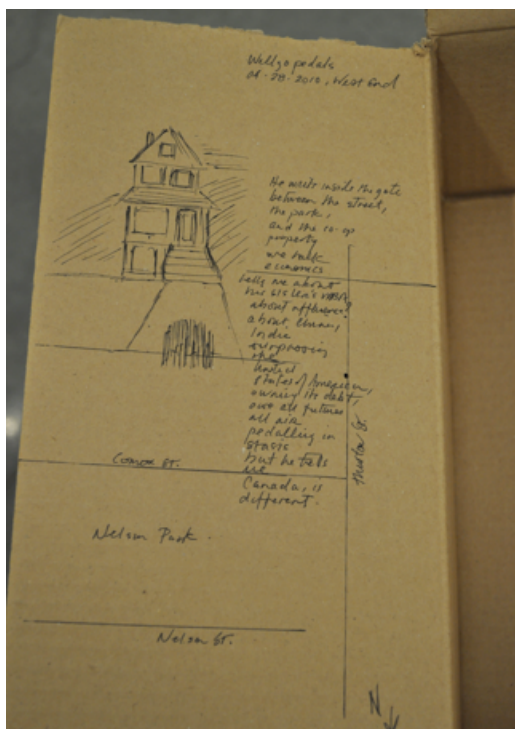 Wellgo pedals
04-28-2012, West End
He waits inside the gate
between the street,
the park,
and the co-op
property
we talk
economics
tells me about
his sister's
about
about China,
India
surpassing
the
United
States of America,
owning its debt,
over all futures
all are
pedalling in
stasis
but he tells
me
Canada, is
different.
Comox St.
Thurlow St.
Nelson Park.
Nelson St.
N